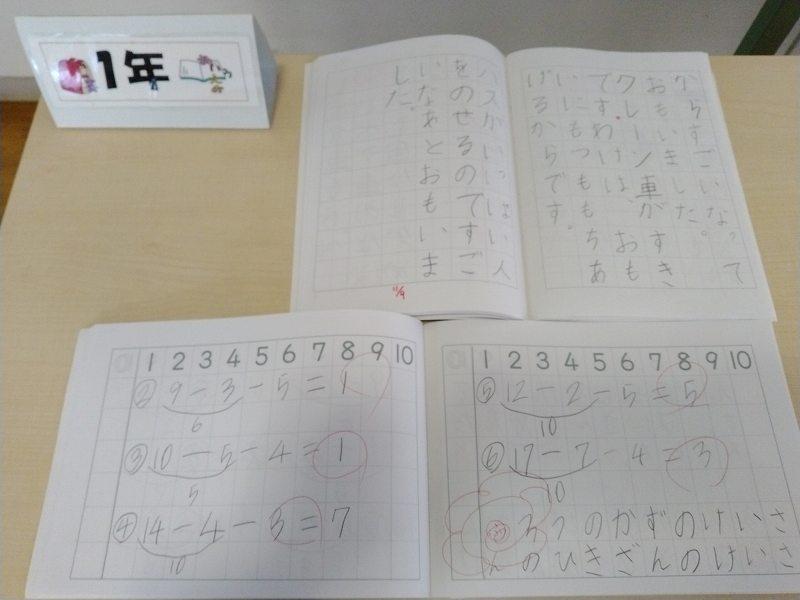 1年
からすごいなって
おもいました。
クレーン車がすき
ですわけは、おも
いにもつももちあ
げるからです。
バスがいっぱい人
をのせるのですご
いなあとおもいま
した。
11/9
1 2 3 4 5 6 7 8 9 10
② 9-3-5=1
6
③ 10-5-4=1
5
④ 14-4-3=7
10
1 2 3 4 5 6 7 8 9 10
⑤ 12-2-5=5
10
⑥ 17-7-4=3
10
3つのかずのけいさ
んのひきざんのけいさ